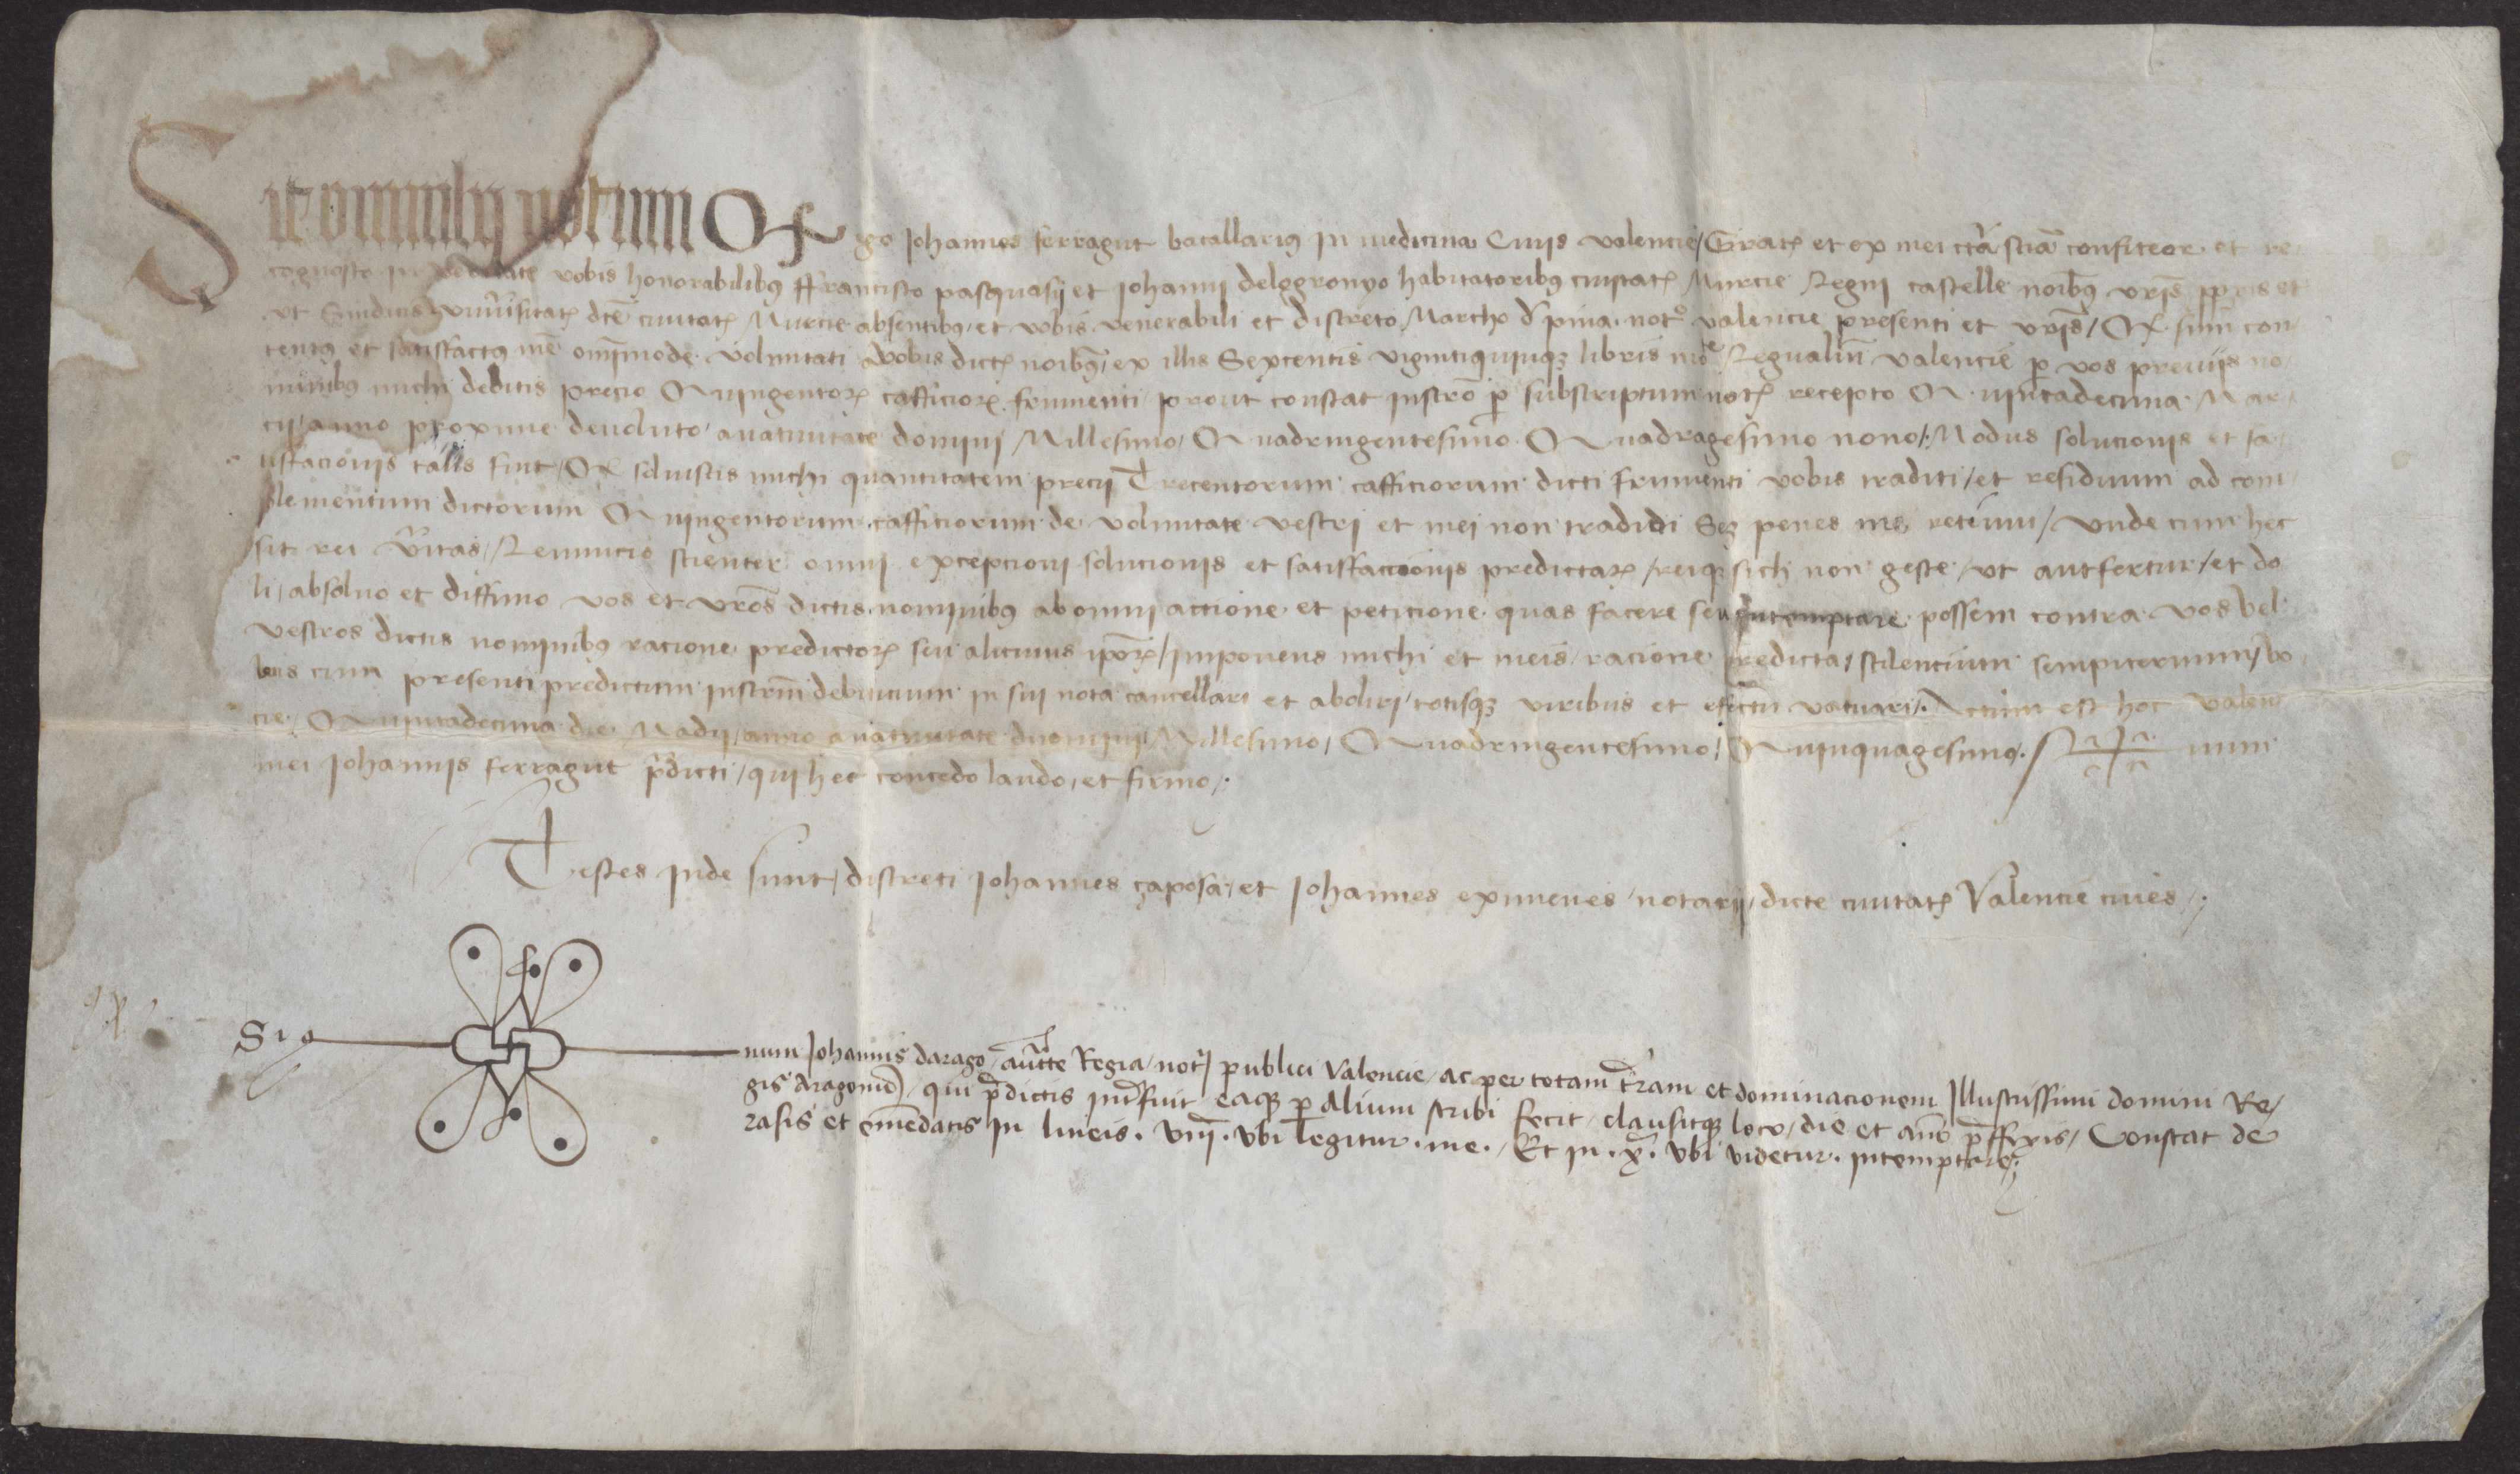 Sit omnibus notum Q ego Johannes ferragut bacallarius in medicina Civis valencie / Gratis et ex mei certa sciencia confiteor et re
cognosco in veritate vobis honorabilibus ffrancisco pasquasij et Johanni delogronyo habitatoribus civitatis Murcie Regni castelle nominibus vestris propriis et
ut Sindicis universitatis dicte civitatis Murcie absentibus et vobis venerabili et discreto Marcho de pina notario valencie presenti et vestris / Q sum con
tentus et satisfactus mee omnimode voluntati a vobis dictis nominibus ex illis Sexcentis viginti quinque libris monete Regalium valencie per vos previis no
minibus michi deditis precio Quingentorum cafficiorum frumenti prout constat instrumento per subscriptum notarium recepto Quintadecima Mar
cij anno proxime devoluto a nativitate domini Millesimo Quadringentesimo Quadragesimo nono / Modus solucionis et sa
tisfacionis talis fuit / Q solvistis michi quantitatem precij Trecentorum cafficiorum dicti frumenti vobis traditi / et residuum ad com
plementum dictorum Quingentorum cafficiorum de voluntate vestri et mei non tradidi Sed penes me retinui / unde cum hec
sit rei veritas / Renuncio scienter omni excepcioni solucionis et satisfaccionis predictarum / reique sich non geste / ut antfertur / et do
li / absolvo et diffinio vos et vestros dictis nominibus ab omni actione et peticione quas facere seu intemptare possem contra vos vel
vestros dictis nominibus racione predictorum seu alicuius ipsorum / imponens michi et meis racione predicta / silencium sempiternum / vo
lens cum presenti predictum instrumentum debitum in sui nota cancellari et aboleri / totisque viribus et efectu vacuari / Actum est hoc Valen
cie / Quintadecima die Madij / anno a nativitate domini Millesimo / Quadringentesimo / Quinquagesimo. / Sig num
mei Johannis ferragut predicti / qui hec concedo laudo / et firmo /.
Testes inde sunt / discreti Johannes çaposa / et Johannes eximenes / notarij / dicte civitatis Valencie cives /.
Sig num Johannis darago / auctoritate Regia / notarij publici Valencie / ac per totam terram et dominacionem Illustrissimi domini Re/
gis Aragonum / qui predictis interfuit eaque per Alium scribi fecit / clausitque loco / die et anno prefixis / Constat de
rasis et emendatis in lineis . VIII . ubi legitur . me . / Et in . X . ubi videtur . intemptare /.